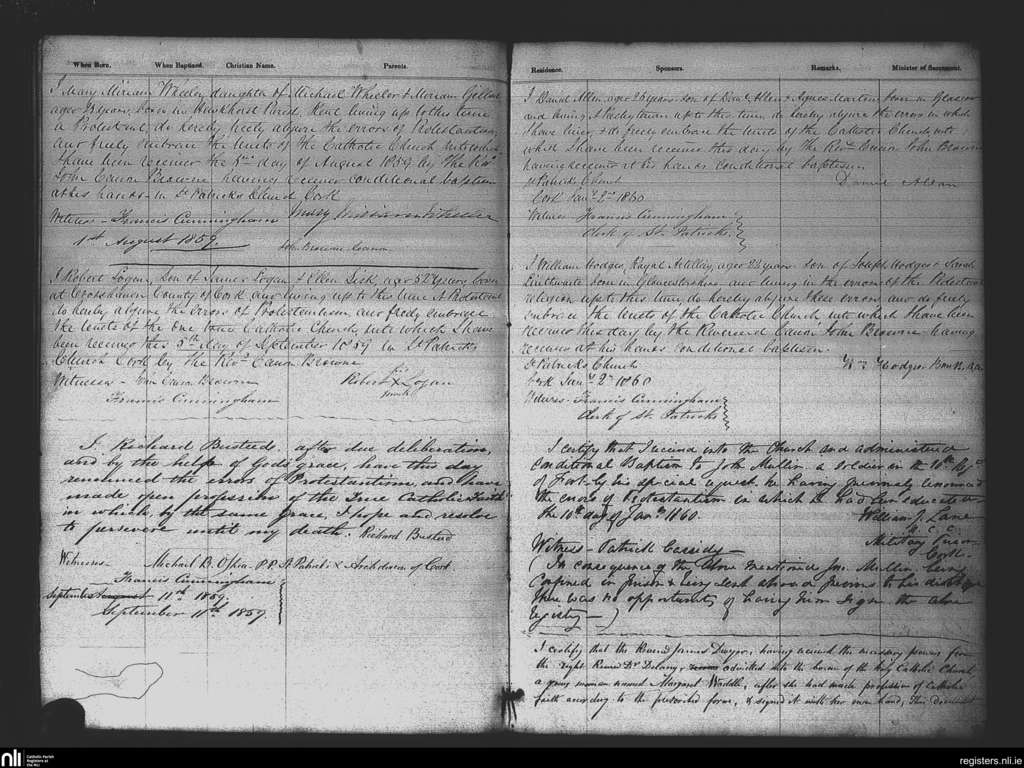 When Born. When Baptized. Christian Name. Parents.
I Mary Miriam Wheeler, daughter of Michael Wheeler & Miriam
aged years, born in Parish, Kent living up to this time
a Protestant, do hereby freely abjure the errors of Protestantism,
and freely embrace the tenets of the Catholic Church into which
I have been received this day of August 1859 by the Revd.
John Canon Browne having received conditional baptism
at his hands in St Patricks Church Cork
Witness - Francis Cunningham Mary Miriam Wheeler
1st August 1859. John Browne Canon
I Robert Logan, son of James Logan & Ellen aged 52 years born
at County of Cork and living up to this time a Protestant
do hereby abjure the errors of Protestantism, and freely embrace
the tenets of the one true Catholic Church, into which I have
been received this 5th day of September 1859 in St Patricks
Church Cork by the Revd. Canon Browne
Witnesses - John Canon Browne Robert his X mark Logan
Francis Cunningham
I. Richard Busteed, after due deliberation,
and by the help of God's grace, have this day
renounced the errors of Protestantism, and have
made open profession of the True Catholic Faith
in which, by the same grace, I hope and resolve
to persevere until my death. Richard Busteed
Witnesses - Michael B. O'Shea. P.P. St Patricks & Archdeacon of Cork
Francis Cunningham
September 11th 1859.
September 11th 1859.
Residence. Sponsors. Remarks. Minister of Sacrament.
I David Allen, aged 26 years son of Allen & Agnes Martin born in Glasgow
and being a Presbyterian up to this time, do hereby abjure the errors in which
I have lived & do freely embrace the tenets of the Catholic Church into
which I have been received this day by the Revd. Canon John Browne
having received at his hands conditional baptism.
St Patricks Church David Allan
Cork Jany. 2nd 1860
Witness Francis Cunningham
Clerk of St. Patricks.
I William Hodges, Royal Artillery, aged 22 years son of Joseph Hodges & Sarah
born in Gloucestershire and living in the errors of the Protestant
religion up to this time, do hereby abjure these errors and do freely
embrace the tenets of the Catholic Church into which I have been
received this day by the Reverend Canon John Browne having
received at his hands conditional baptism.
St Patricks Church Wm Hodges
Cork Jany. 2nd 1860
Witness - Francis Cunningham
Clerk of St. Patricks
I certify that I received into the Church and administered
Conditional Baptism to John Mullin a soldier in the 10th Regt
of Foot by his special request he having previously renounced
the errors of Protestantism in which he had been educated on
the 10th day of Jany. 1860. William J. Lane
C.C.
Witness - Patrick Cassidy - Military Prison
Cork -
(In consequence of the above mentioned Jno. Mullin being
confined in prison & being sent previous to his discharge
there was no opportunity of having him sign the above
registry - )
I certify that the Revend James Dwyer, having received the necessary powers from
the right Revd Dr. Delany, admitted into the bosom of the holy Catholic Church
a young woman named Margaret Waddle, after she had made profession of Catholic
faith according to the prescribed form, & signed it with her own hand, this document
nli Catholic Parish Registers at the NLI
registers.nli.ie